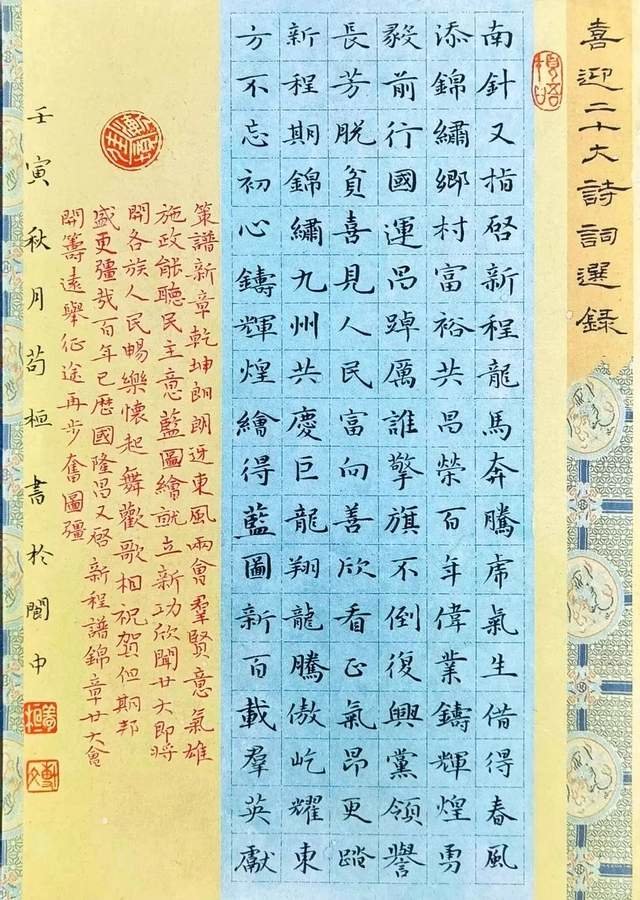 喜迎二十大詩詞選錄
南針又指启新程龍馬奔騰虎氣生借得春風
添錦繡鄉村富裕共昌榮百年偉業鑄輝煌勇
毅前行國運昌踔厲誰擎旗不倒復興黨領譽
長芳脫貧喜見人民富向善欣看正氣昂更踏
新程期錦繡九州共慶巨龍翔龍騰傲屹耀東
方不忘初心鑄輝煌繪得藍圖新百載羣英獻
策譜新章乾坤朗朗迓東風兩會羣賢意氣雄
施政能聽民主意藍圖繪就立新功欣聞廿大即將
開各族人民暢樂懷起舞歡歌相祝賀但期邦
盛更疆哉百年已歷國隆昌又启新程譜錦章廿大會
開籌遠舉征途再步奮圖疆
壬寅秋月苟桓書於閬中